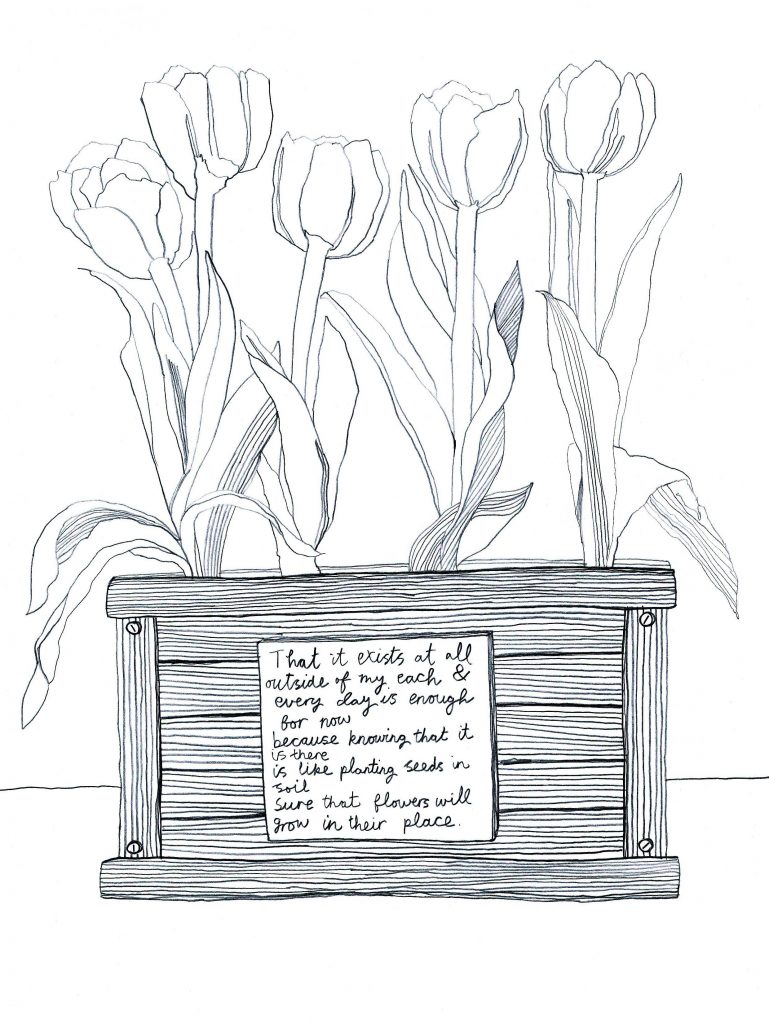 That it exists at all
outside of my each &
every day is enough
for now
because knowing that it
is there
is like planting seeds in
soil
Sure that flowers will
grow in their place.